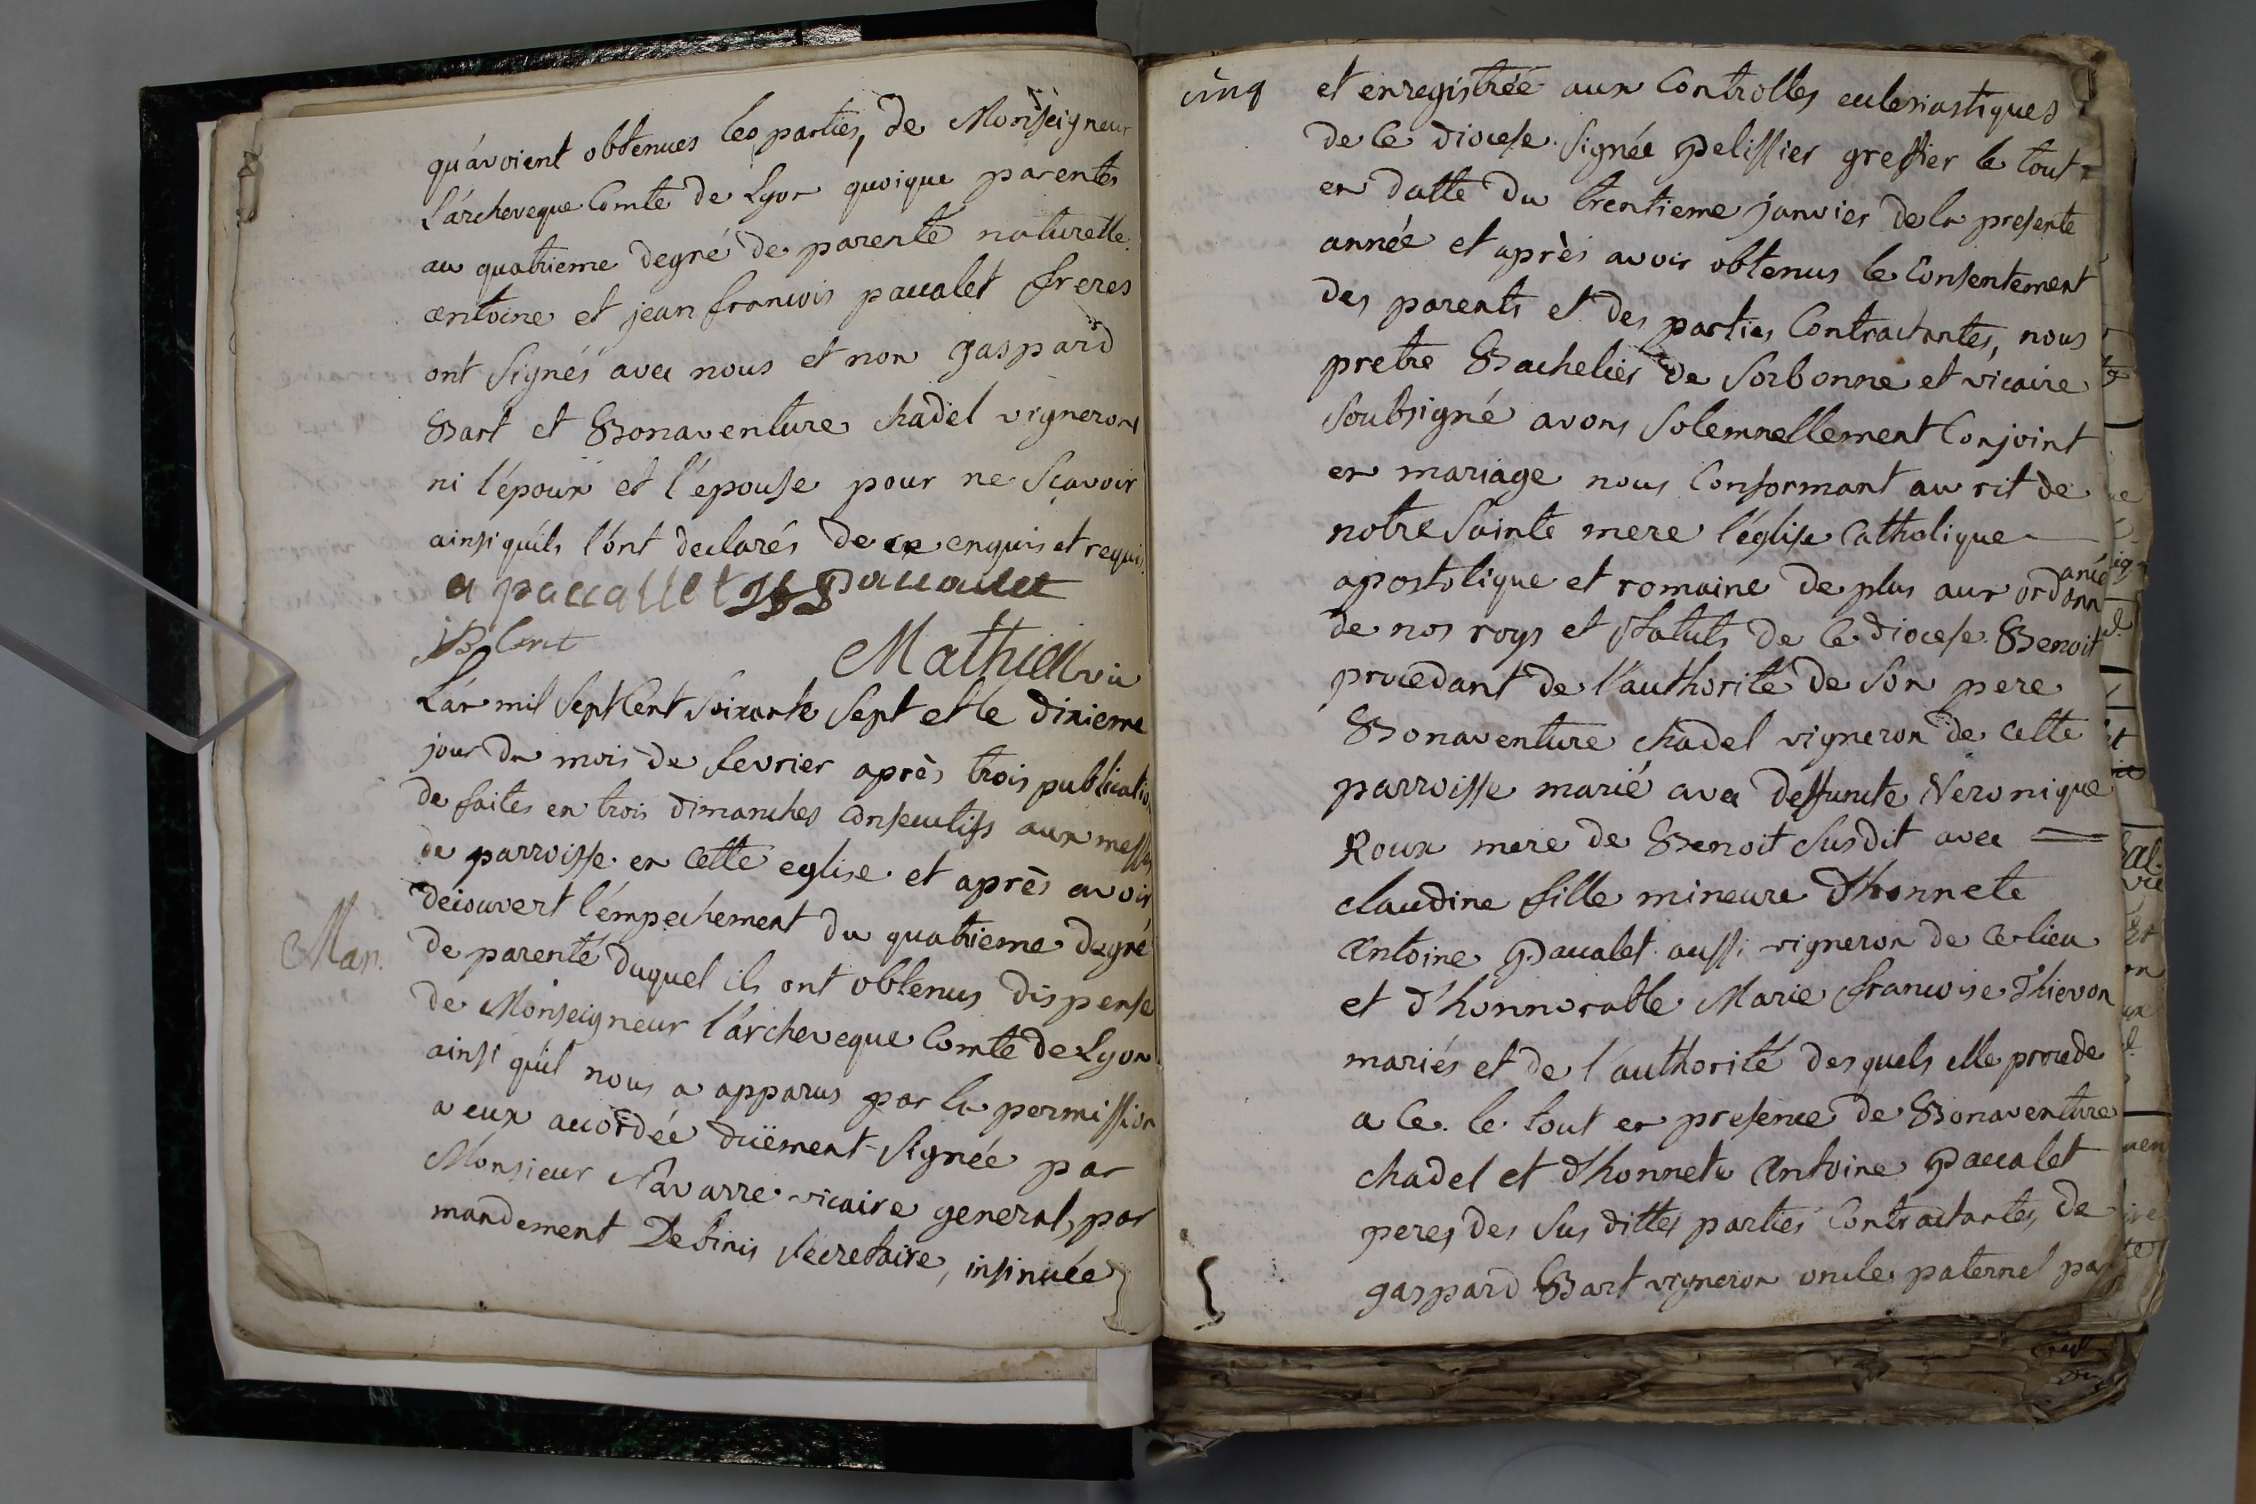 qu'avoient obtenues les parties, de Monseigneur
L'archeveque Comte de Lyon quoique parentes
au quatrieme degré de parenté naturelle.
antoine et jean francois paccalet freres
ont signés avec nous et non gaspard
Bart et Bonaventure chadel vignerons
ni l'époux et l'épouse pour ne scavoir
ainsi qu'ils l'ont declarés de ce enquis et requis.
a paccallet paccallet
Mathieu vic
L'an mil sept Cent soixante sept et le dixieme
jour du mois de fevrier après trois publicatio
de faites en trois dimanches consecutifs aux messes
de parroisse en cette eglise et après avoir
decouvert l'empechement du quatrieme degré
Mar. de parenté duquel ils ont obtenus dispense
de Monseigneur l'archeveque Comte de Lyon
ainsi qu'il nous a apparus par la permission
a eux accordée duëment signée par
Monsieur Navarre vicaire general, par
mandement Debinis secretaire, insinuée
cinq
et enregistrée aux Controlles eclesiastiques
de Ce diocese signée Pelissier greffier le tout
en datte du trentieme janvier de la presente
année et après avoir obtenus le Consentement
des parents et des parties Contractantes, nous
pretre Bachelier de Sorbonne et vicaire
soubsigné avons solemnellement Conjoint
en mariage nous Conformant au rit de
notre sainte mere l'église Catholique
apostolique et romaine de plus aux ordonn
ances
de nos roys et statuts de Ce diocese Benoit
procedant de l'authorité de son pere
Bonaventure chadel vigneron de cette
parroisse marié avec deffuncte Veronique
Roux mere de Benoit susdit avec
claudine fille mineure d'honnete
antoine Paccalet aussi vigneron de ce lieu
et d'honnorable Marie francoise Thievon
mariés et de l'authorité desquels elle procede
a Ce le tout en presence de Bonaventure
chadel et d'honnete antoine Paccalet
peres des sus dittes parties Contractantes, de
gaspard Bart vigneron oncle paternel pa